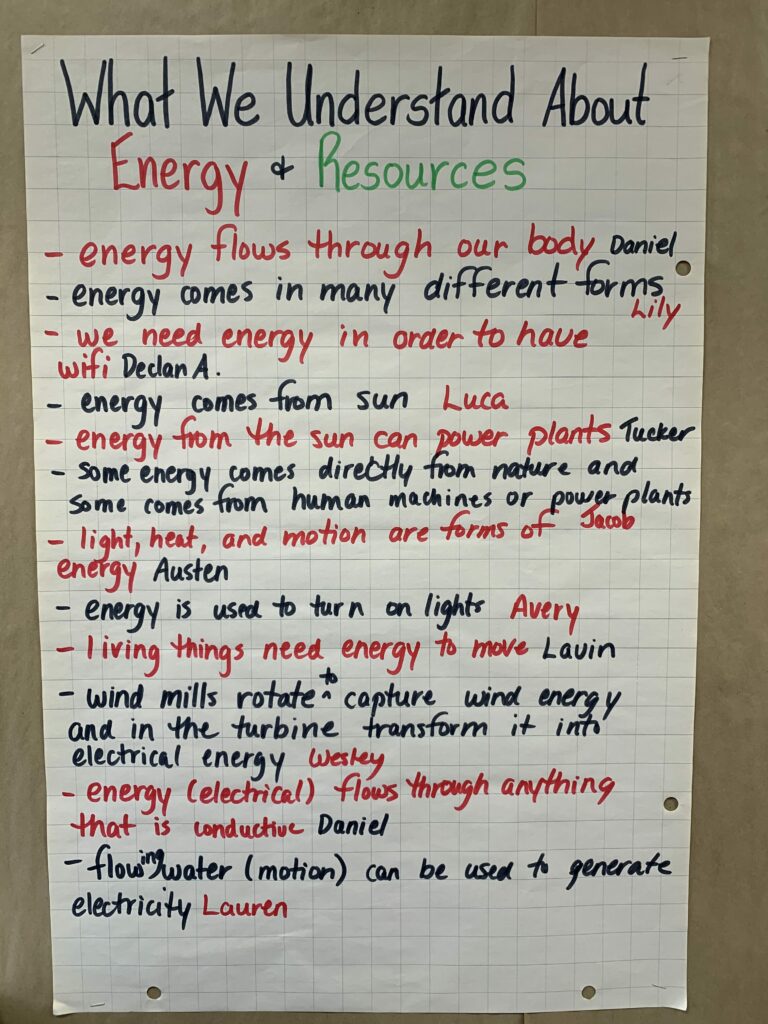 What We Understand About
Energy & Resources
- energy flows through our body Daniel
- energy comes in many different forms
Lily
- we need energy in order to have
wifi Declan A.
- energy comes from sun Luca
- energy from the sun can power plants Tucker
- some energy comes directly from nature and
some comes from human machines or power plants
Jacob
- light, heat, and motion are forms of
energy Austen
- energy is used to turn on lights Avery
- living things need energy to move Lavin
- wind mills rotate ^to capture wind energy
and in the turbine transform it into
electrical energy Wesley
- energy (electrical) flows through anything
that is conductive Daniel
- flowing water (motion) can be used to generate
electricity Lauren